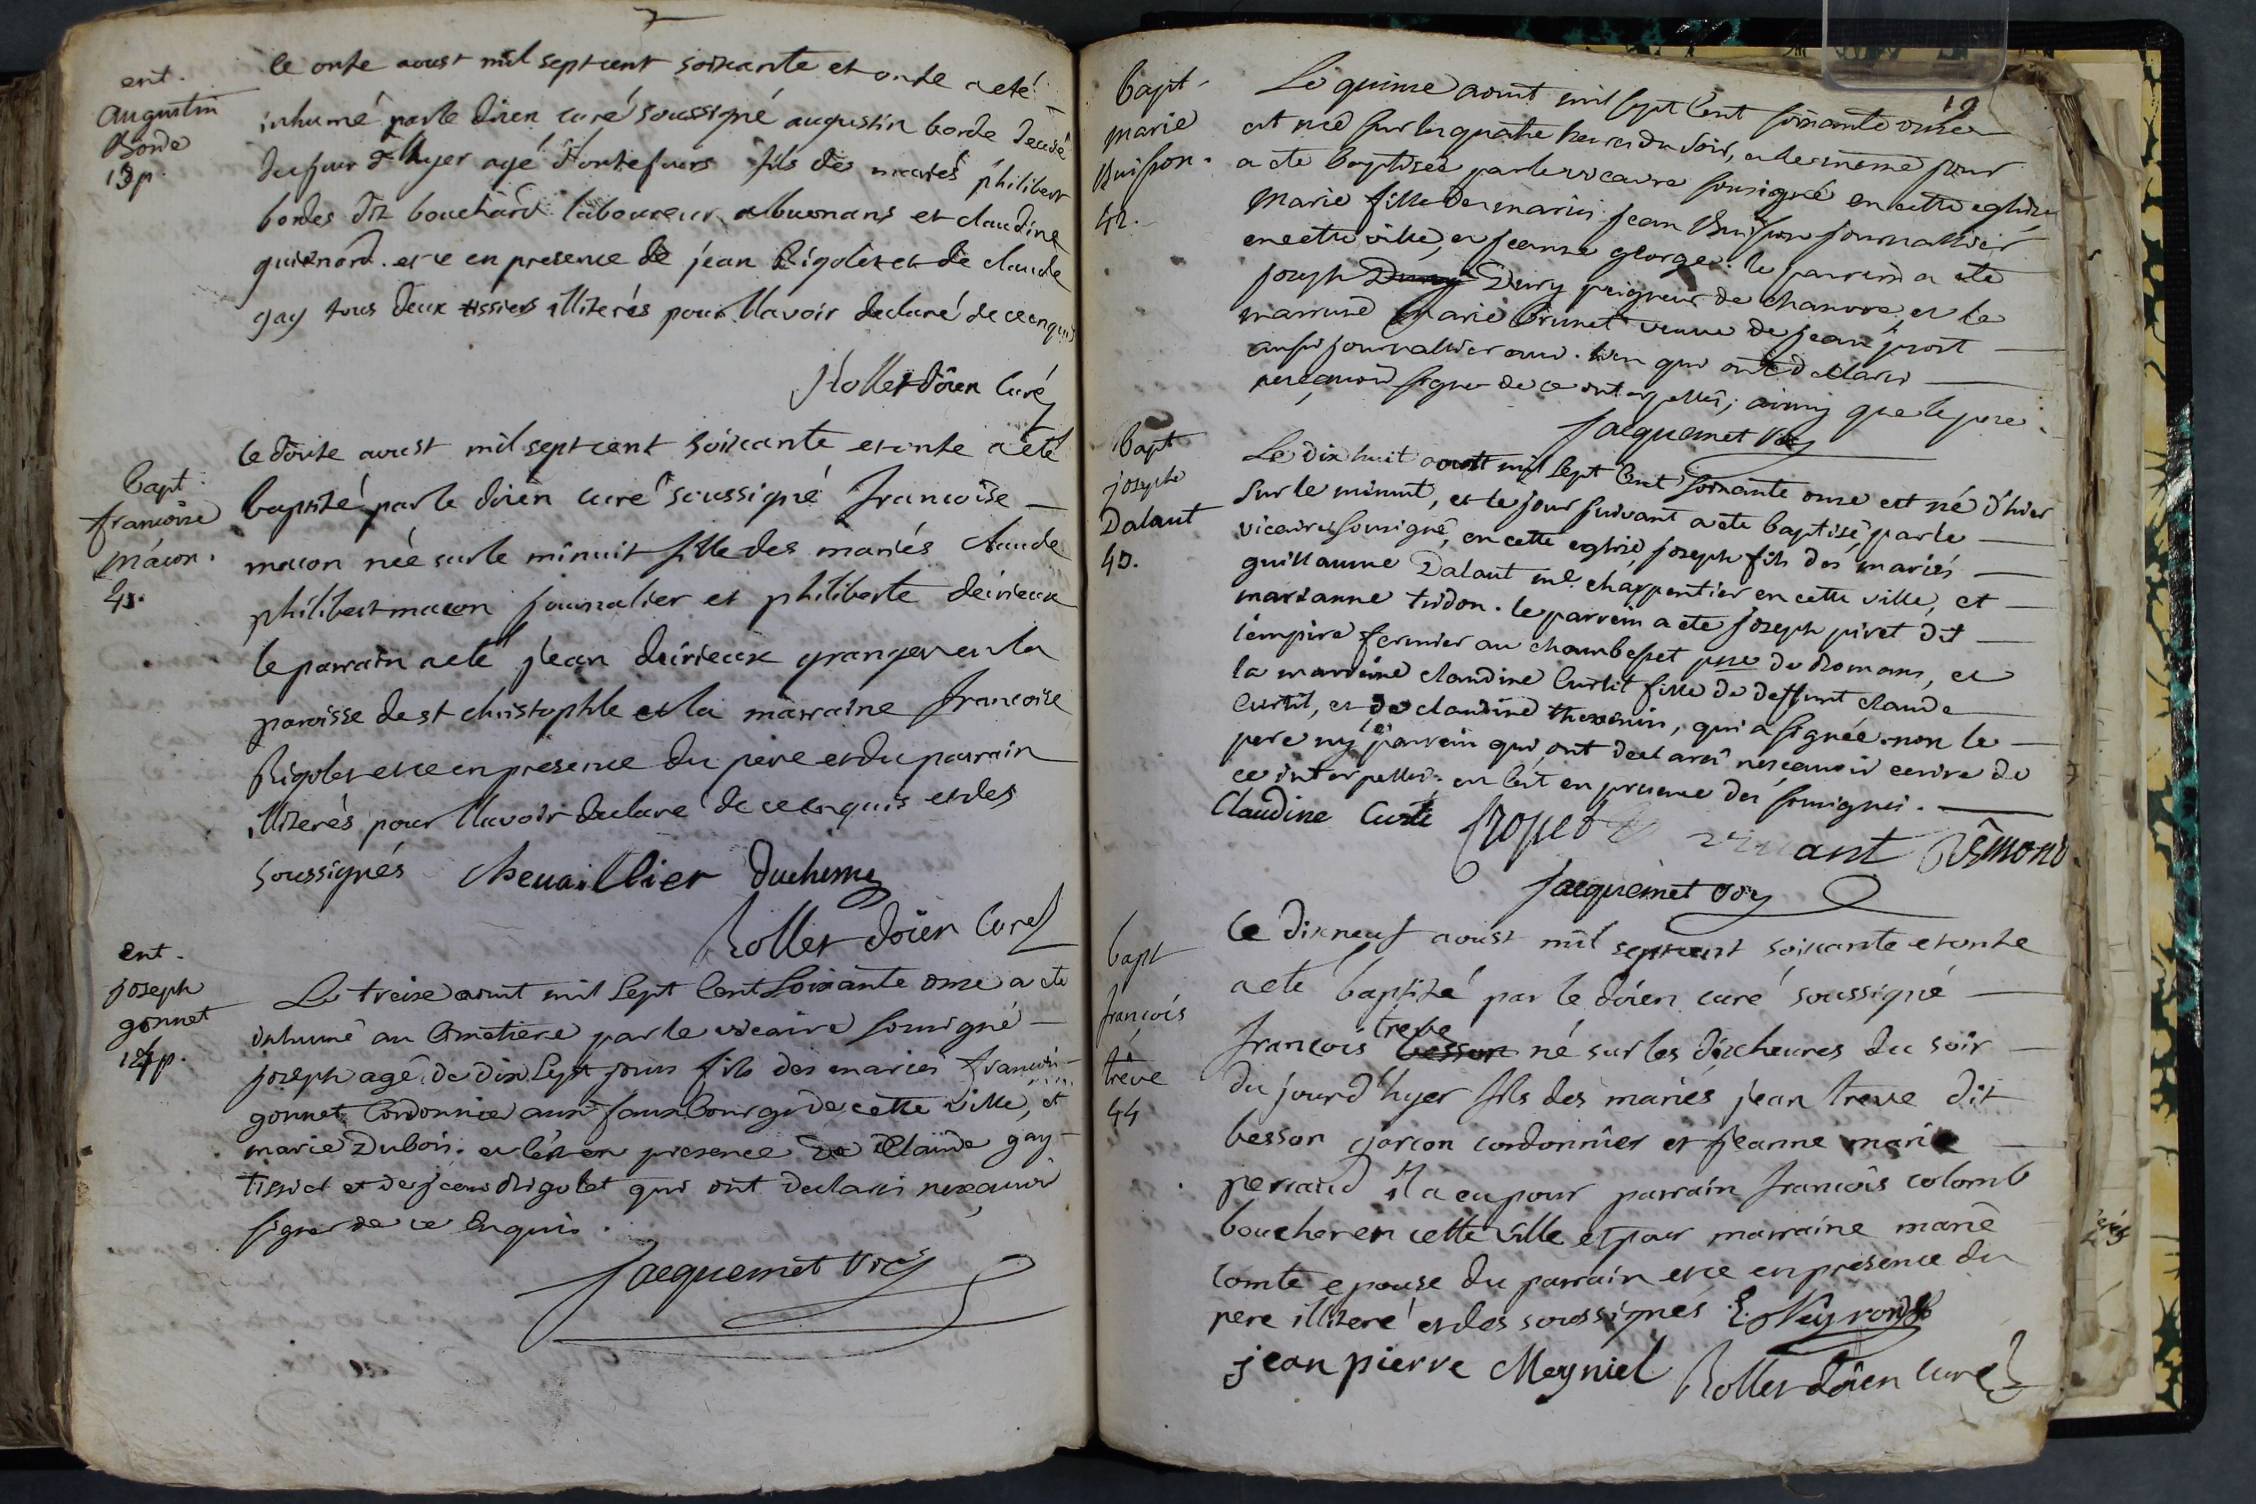 ent.
augustin
Borde
13 p.
le onse aoust mil sept cent soixante et onse a eté
inhumé par le doien curé soussigné augustin borde decedé
du jour d'hyer agé d'onse jours fils des mariés philibert
bordes dit bouchard laboureur a buenans et claudine
guienard. et ce en presence de jean Rigolet et de claude
gay tous deux tissiers illiterés pour l'avoir declaré de ce enquis
Rollet doien curé
Bapt.
francoise
Mâcon.
41.
le douse aoust mil sept cent soixante et onse a eté
baptisé par le doien curé soussigné francoise
macon née sur le minuit fille des mariés claude
philibert macon journalier et philiberte deirieux
le parrain a eté jean deirieux granger en la
paroisse de st christophle et la marraine francoise
Rigolet et ce en presence du pere et du parrain
illiterés pour l'avoir declaré de ce enquis et des
soussignés chevaillier Duchesne
Rollet doien curé
ent.
joseph
gonnet
14 p.
Le treise aout mil sept cent soixante onse a ete
inhumé au Cimetiere par le vicaire sousigné
joseph agé de dix sept jours fils des mariés francois
gonnet Cordonnier aux faux bourgs de cette ville, et
marie Dubois. et c'est en presence de Claude gay
tissier et de jean Rigolet qui ont declarés ne scavoir
signer de ce Enquis.
Jacquemet vic
19
Bapt.
marie
Buisson.
42.
Le quinse aout mil sept Cent soixante onse
est née sur les quatre heures du soir, et le même jour
a ete baptisée par le vicaire sousigné en cette eglise
Marie fille des mariés jean Buisson journallier
en cette ville, et jeanne george. le parrain a ete
joseph Dury Dury peigneur de chanvre et la
marraine Marie Brunet veuve de jean prost
aussi journallier aud. lieu qui ont declarés
ne scavoir signer de ce interpellés, ainsy que le pere.
Jacquemet vic
Bapt
joseph
Dalaut
43.
Le dix huit aoust mil sept Cent soixante onse est né d'hier
sur le minuit, et le jour suivant a ete baptisé par le
vicaire sousigné, en cette eglise joseph fils des mariés
guillaume Dalaut me. charpentier en cette ville, et
marianne tridon. le parrein a ete joseph pivet dit
l'empire fermier au chambepet psse de Romans, et
la marreine claudine Curtil fille de deffunt claude
Curtil, et de claudine thevenin, qui a signée non le
pere ny le parrein qui ont declarés ne scavoir ecrire de
ce interpellés. et c'est en presence des sousignés.
Claudine Curti ant Rêmond
Jacquemet vic
bapt
francois
trêve
44
le dix neuf aoust mil sept cent soixante et onse
a eté baptisé par le doien curé soussigné
francois besson treve né sur les dix heures du soir
du jour d'hyer fils des mariés jean treve dit
besson garcon cordonnier et jeanne marie
perraud il a eu pour parrain francois colomb
boucher en cette ville et pour marraine marie
comte epouse du parrain et ce en presence du
pere illiteré et des soussignés E. Neyron
jean pierre Meyniel Rollet doien curé